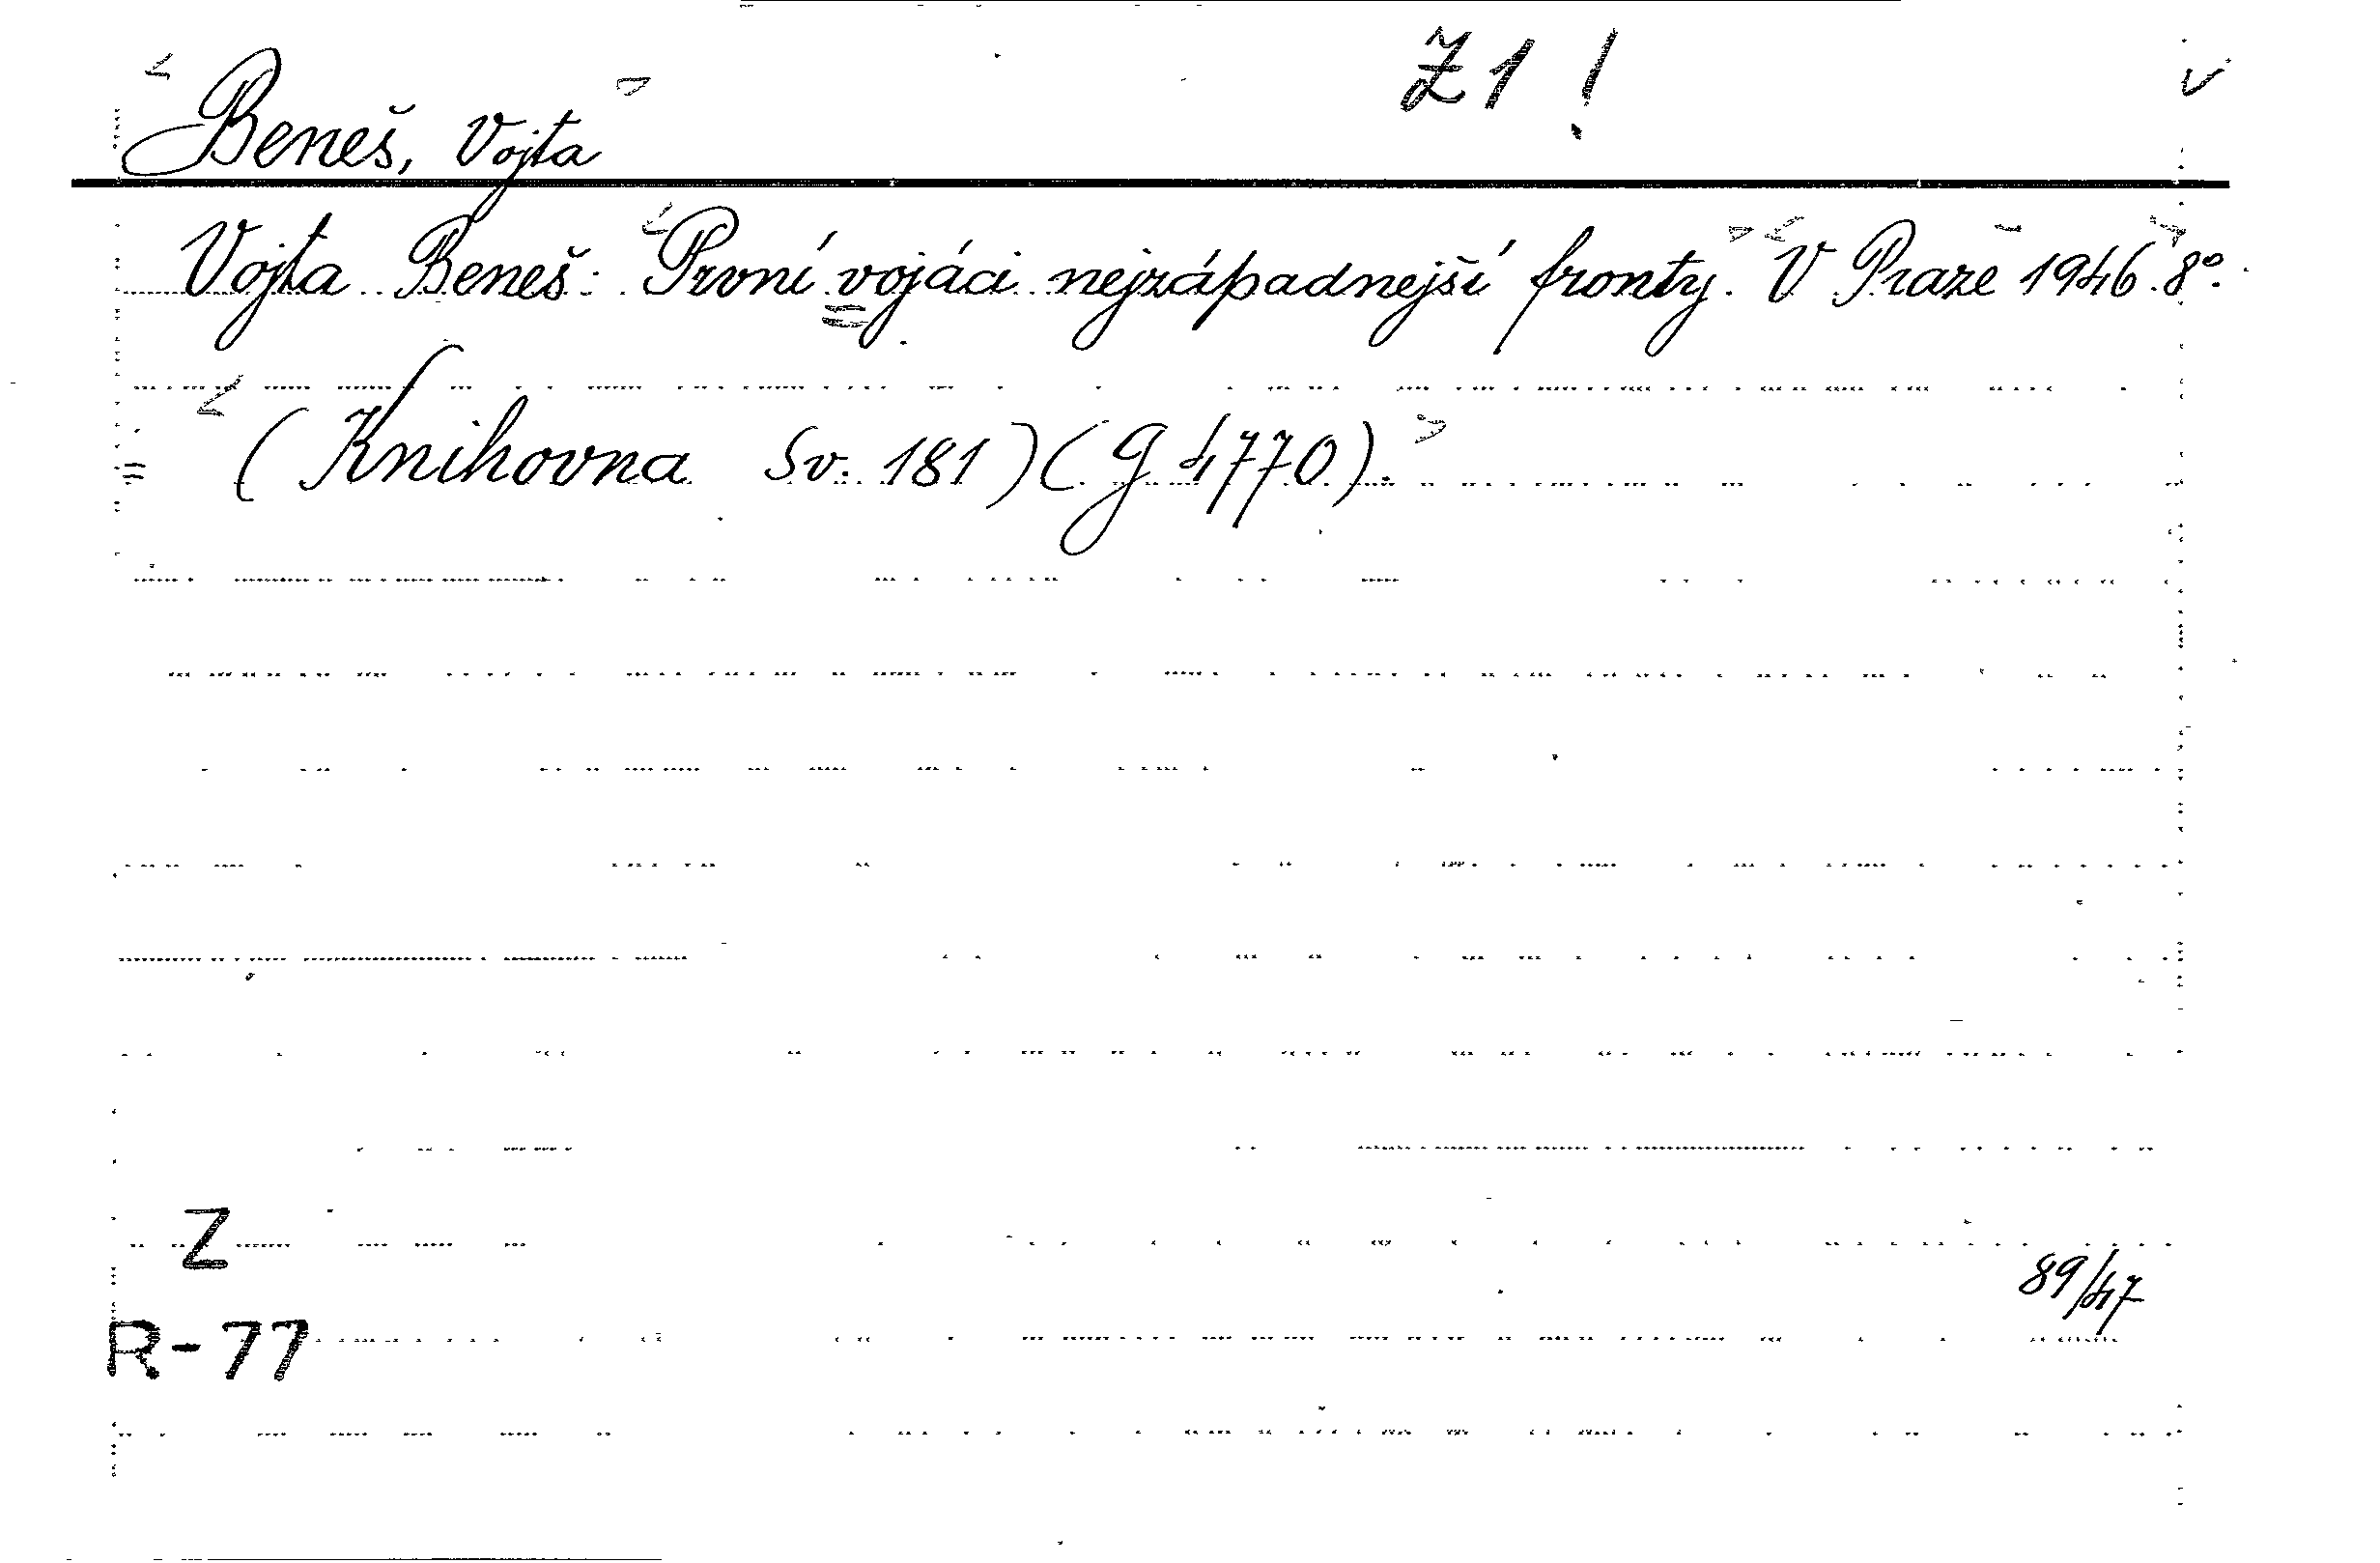 Z1!
Beneš, Vojta
Vojta Beneš: První vojáci nejzápadnejší fronty. V Praze 1946. 8°.
(Knihovna Sv. 181) (G 4770).
Z
89/47
R-77